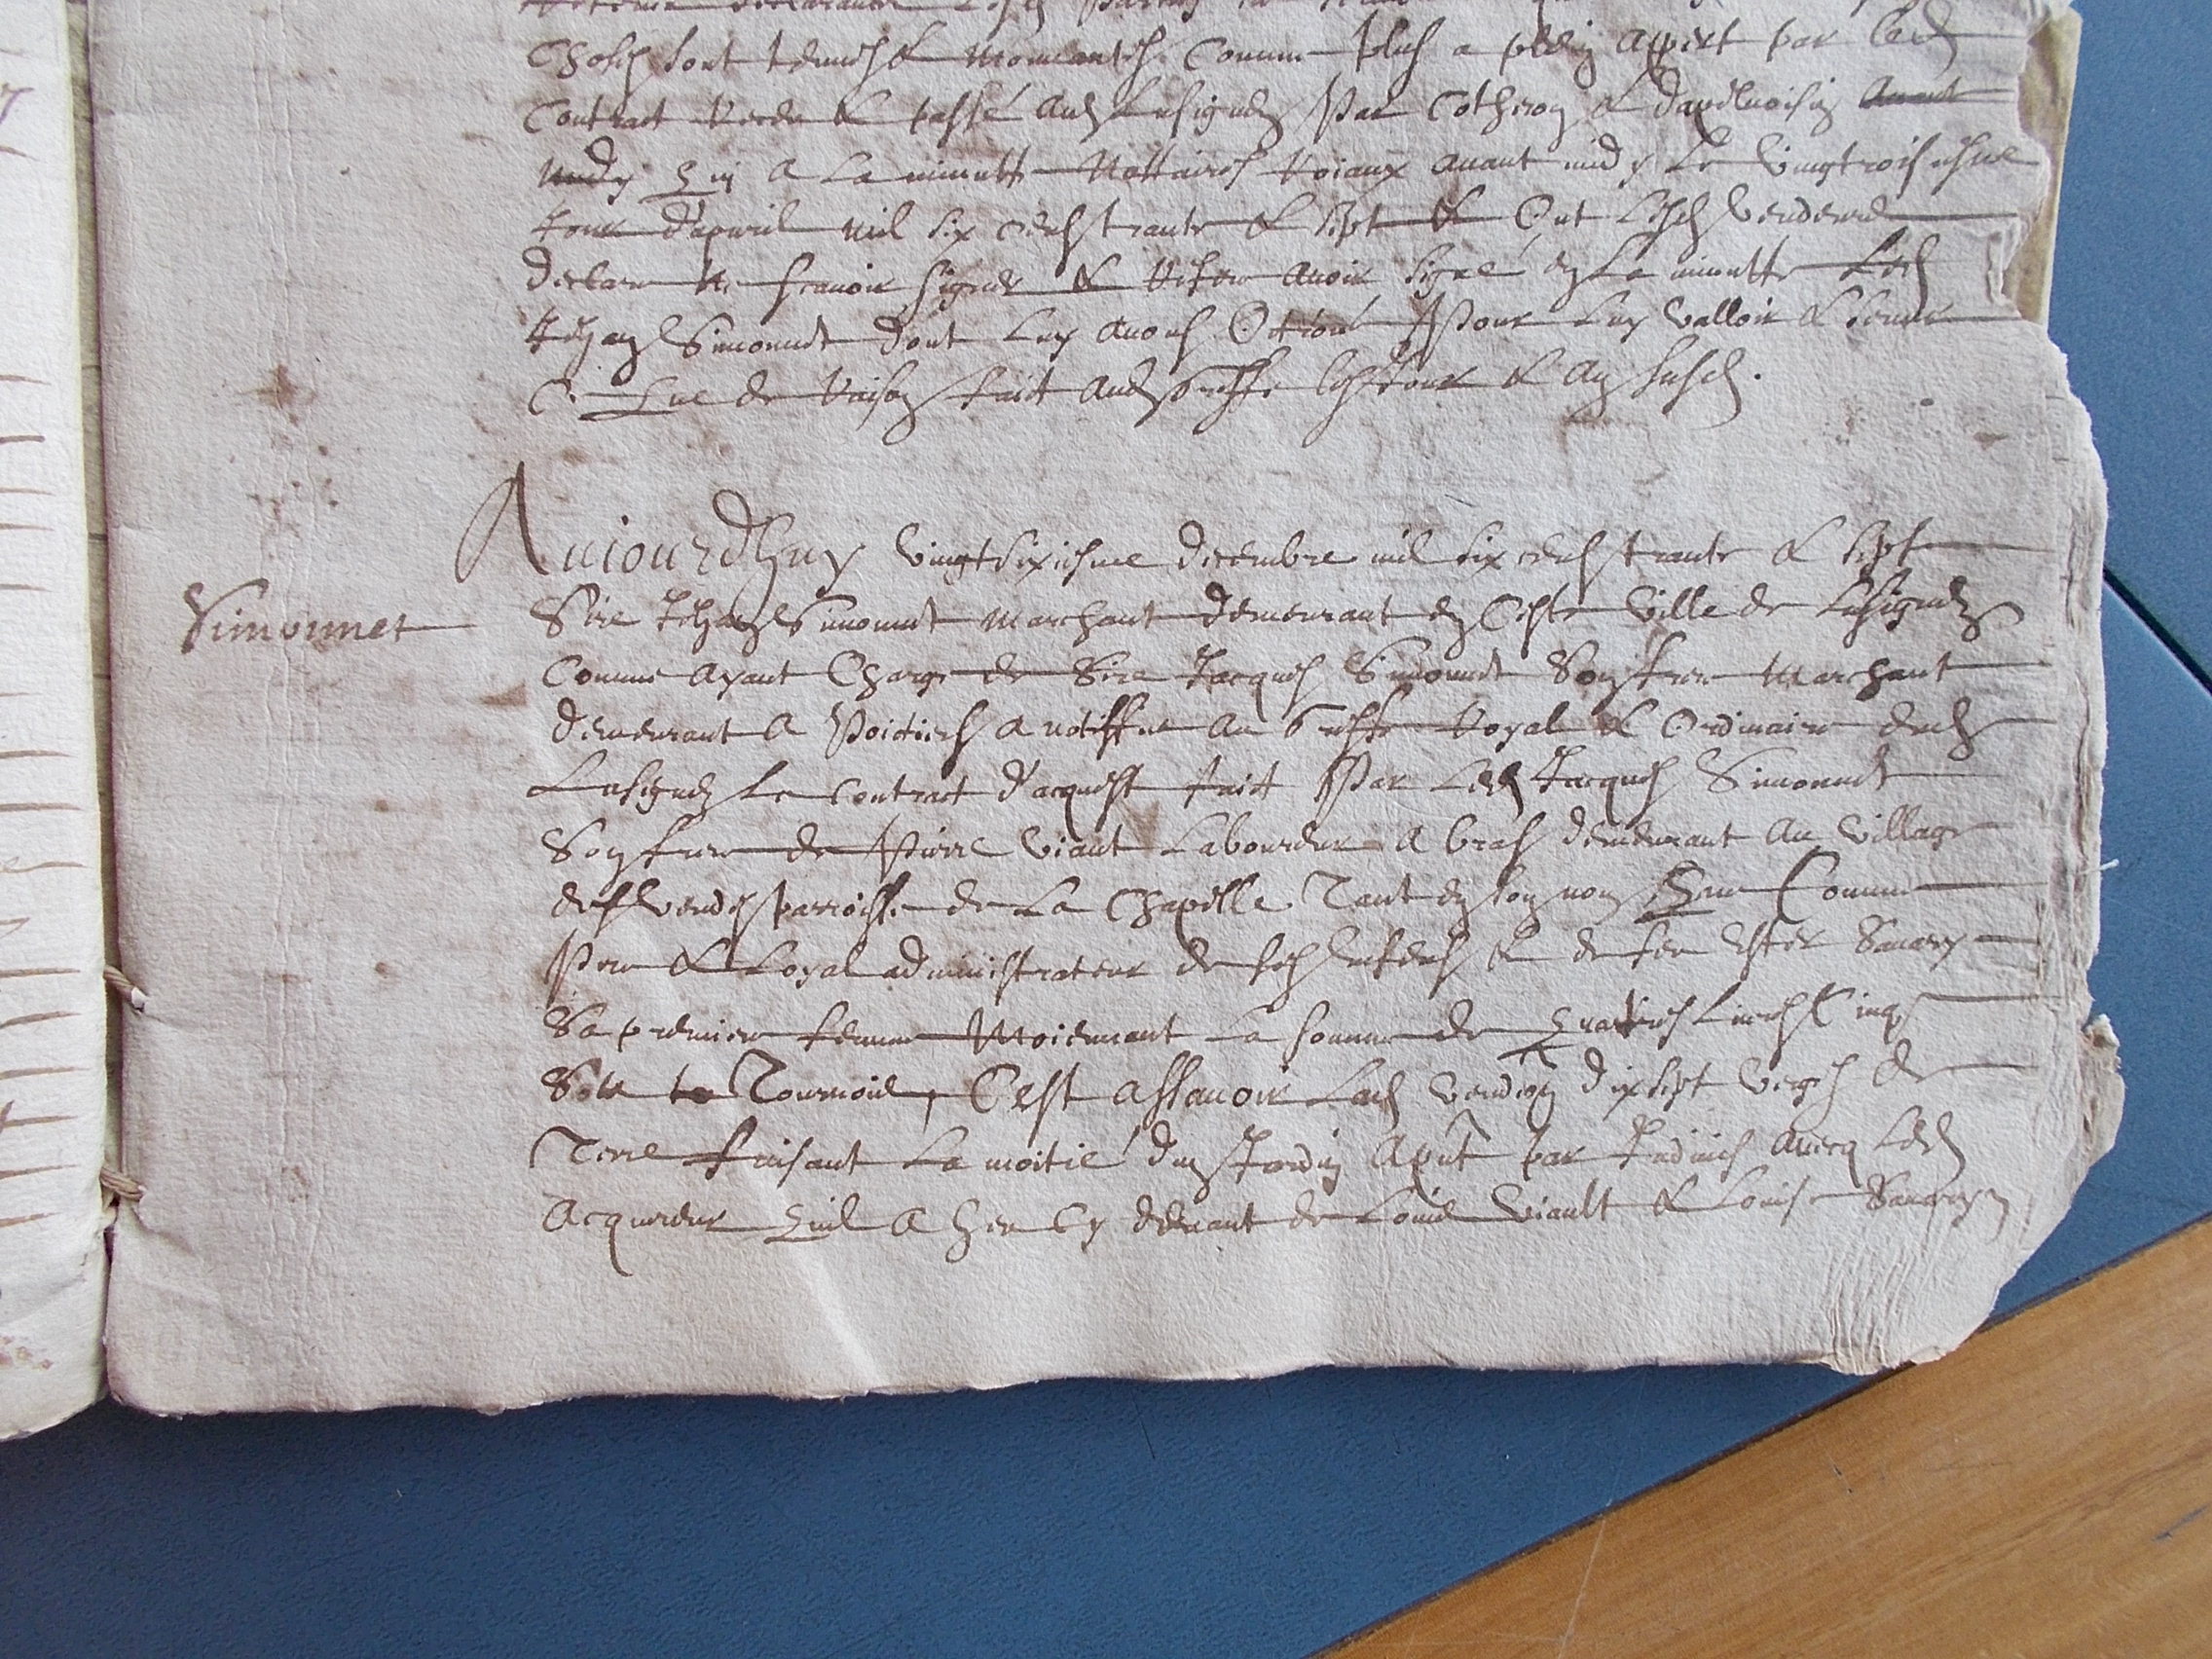 Choses sont tenues & mouvantes Comme plus a plein appert par led
Contract Receu & passé aud Lusignen Par Cotheron &
midy Qui a la minutte Nottaires Roiaux avant midy Le vingtroisiesme
Jour d'apvril mil six cens trante & sept & Ont Lesd vendeurs
declare ne scavoir signer & Avoir signé en La minutte Led
Jehan Simonnet dont Luy avons Octroié Pour Luy valloir & servir
Ce Que de Raison faict aud Greffe les Jour & An susd.
Aujourd'huy vingtsixiesme decembre mil six cens trante & sept
Simonnet
Sire Jehan Simonnet marchant demeurant en Ceste ville de Lusignen
Comme ayant Charge de Sire Jacques Simonnet Son frere Marchant
demeurant A Poictiers a notiffie Au Greffe Royal & Ordinaire dud
Lusignen Le Contract d'acquest faict Par Led Jacques Simonnet
Son frere de Pierre Viault Laboureur A bras demeurant Au village
des parroisse de La Chapelle Tant en son nom Que Comme
Pere & Loyal administrateur de ses enfens & de feu Ester Savary
Sa premiere femme Moiennant La somme de Livres Cinq
Solz to Tournois, C'est assavoir Lad vendition dixsept verges de
Terre faisant La moitié d'un Jardin par Indivis avecq Led
Acquereur Quil A heu Cy devant de Louis Viault & Louise Savary